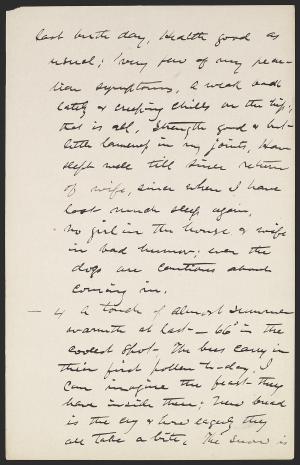 last birth day. Health good as
usual; very few of my
symptoms, a weak and
lately a creeping chills on the hip;
that is all. Strength good & but
little lameness in my joints. Have
slept well till since return
of wife, since when I have
lost much sleep again.
No girl in the house & wife
in bad humor; even the
dogs are cautious about
coming in.
— 4 A touch of almost summer
warmth at last — 66° in the
coolest spot. The bees carry in
their first pollen to-day. I
can imagine the feast they
have inside there; New bread
is the cry & how eagerly they
all take a bite. The snow is